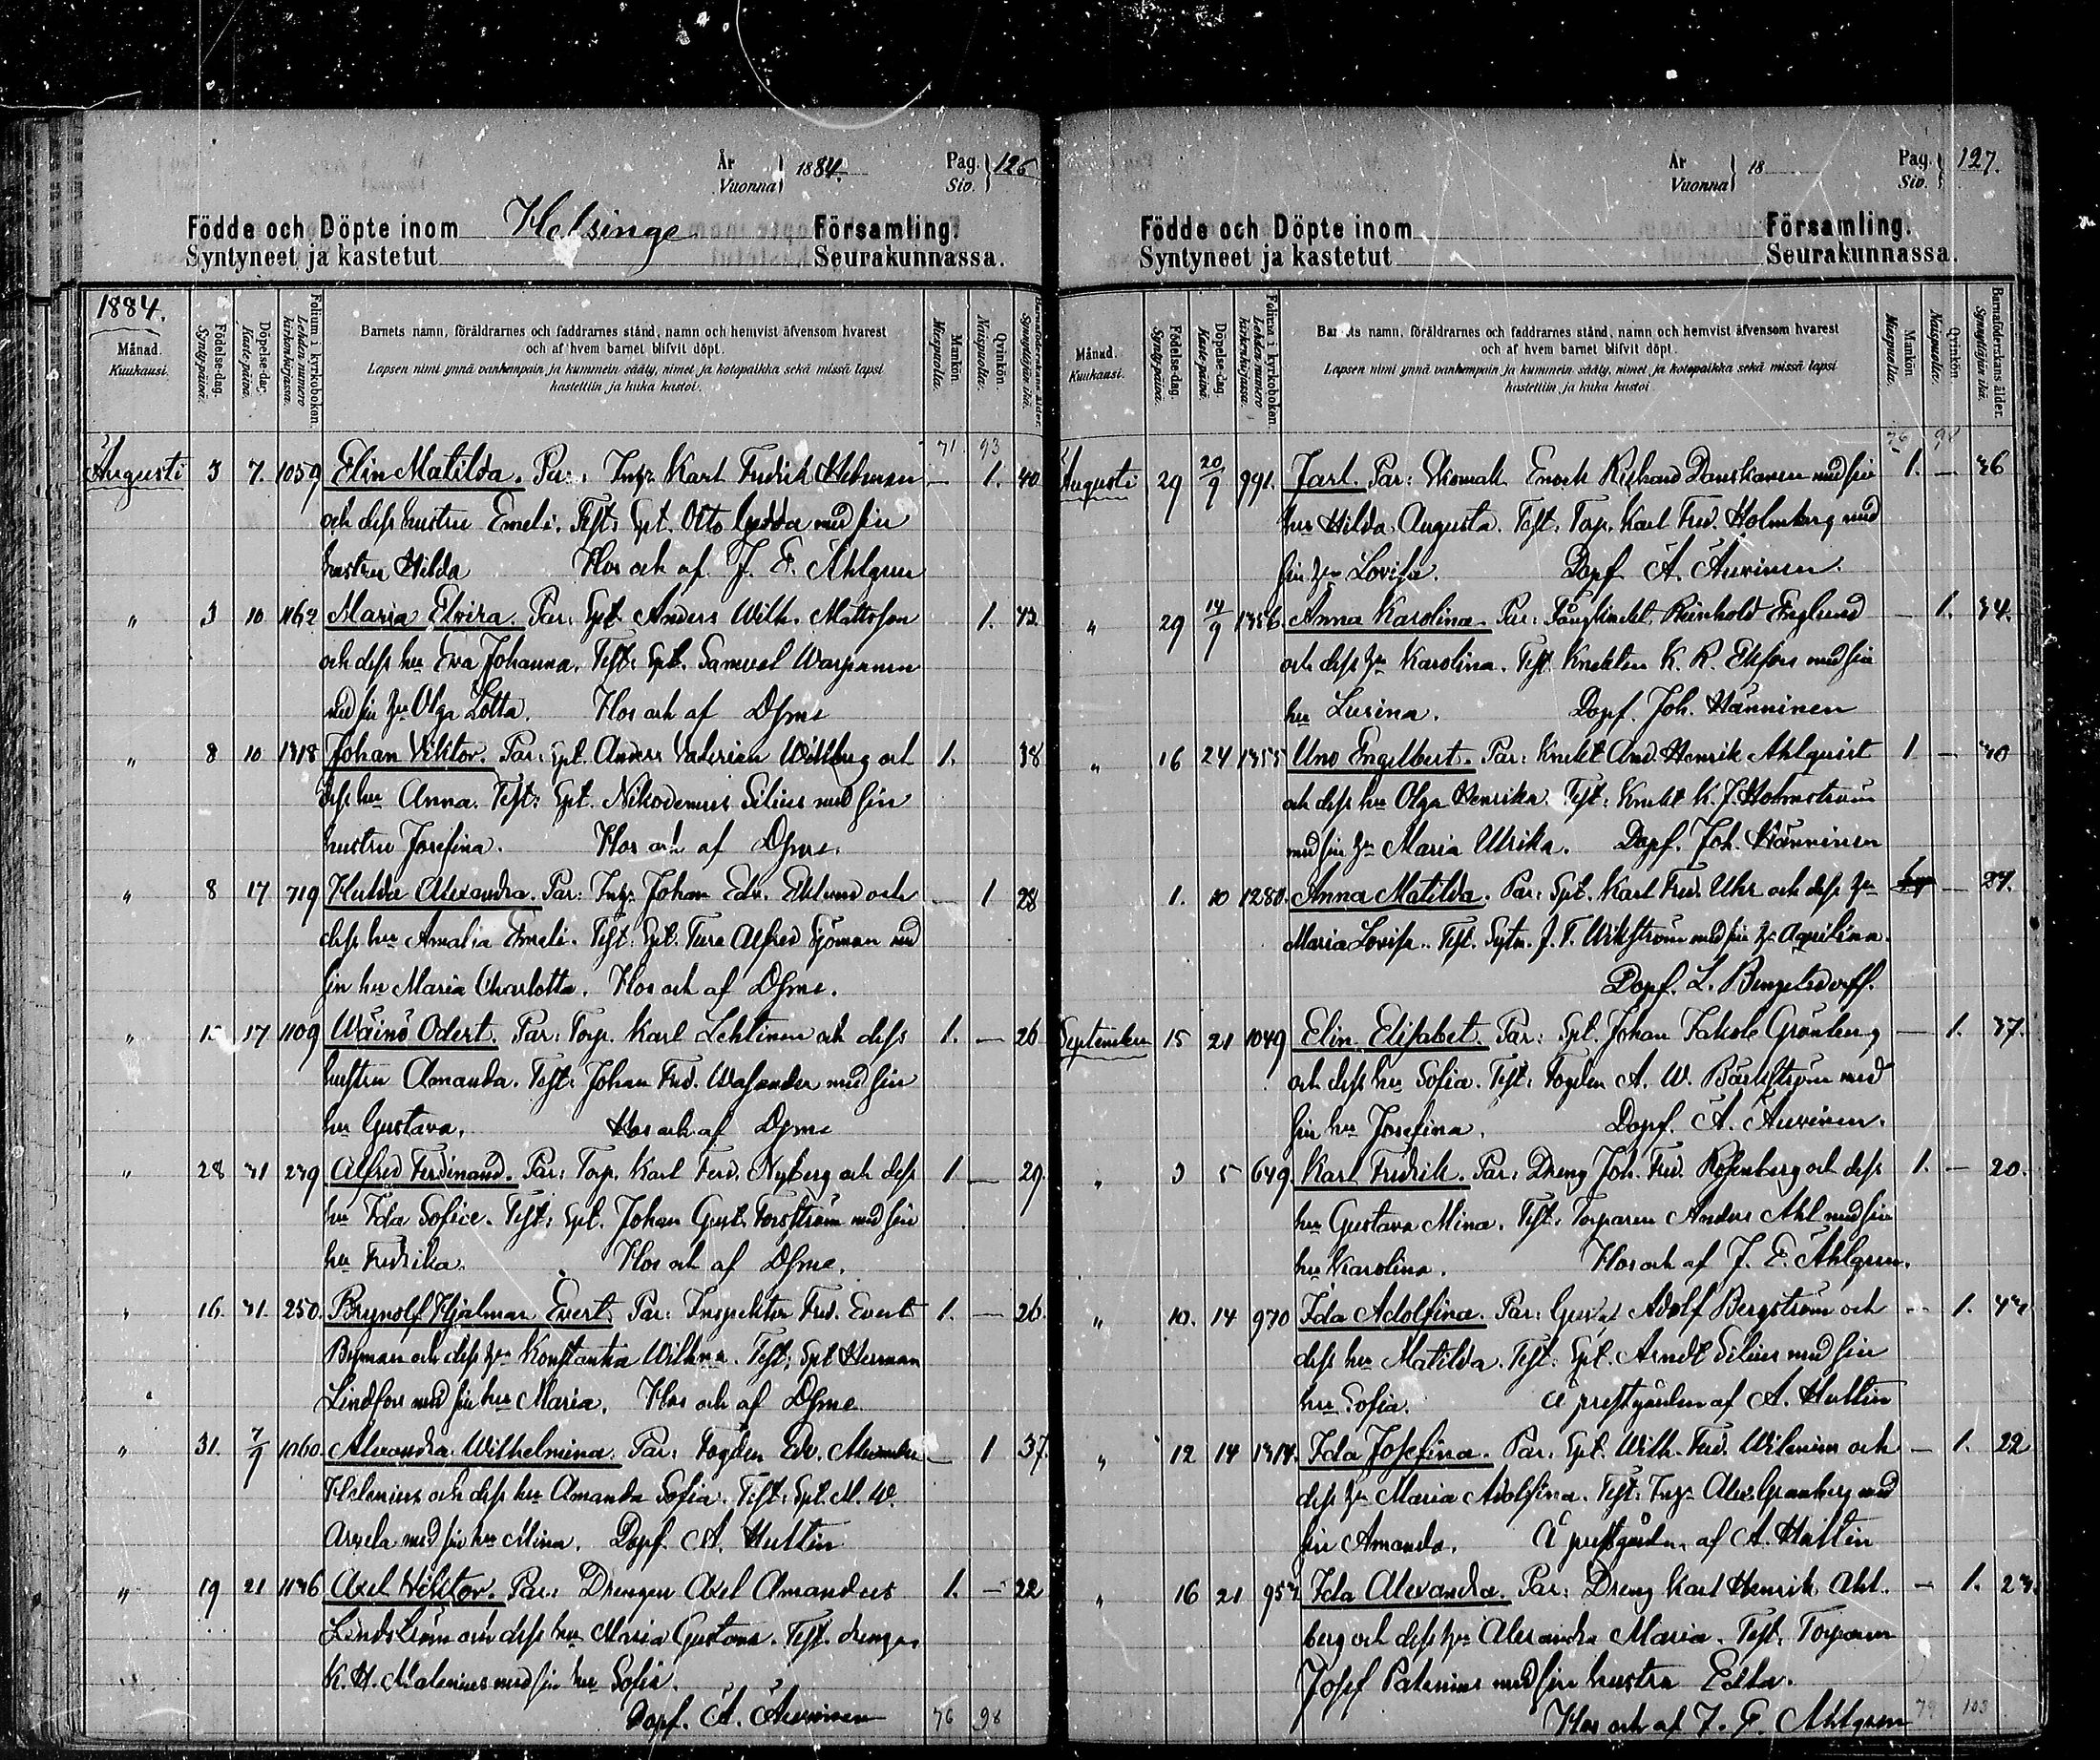 År
Vuonna 1884.
Pag.
Siv. 126
Födde och Döpte inom Helsinge Församling.
Syntyneet ja kastetut Seurakunnassa.
1884.
Månad.
Kuukausi.
Födelse-dag.
Syntypäivä.
Döpelse-dag.
Kastepäivä.
Folium i kyrkoboken.
Lehden numero kirkonkirjassa.
Barnets namn, föräldrarnes och faddrarnes stånd, namn och hemvist äfvensom hvarest
och af hvem barnet blifvit döpt.
Lapsen nimi ynnä vanhempain ja kummein sääty, nimet ja kotopaikka sekä missä lapsi
kastettiin ja kuka kastoi.
Mankön.
Miespuolia.
Qvinkön.
Naispuolia.
Barnaföderskans ålder.
Synnyttäjän ikä.
71. 93
Augusti 3 7. 1059 Elin Matilda. Par: Karl Fredrik — 1. 40
och dess hustru Emeli. Test: Spt. Otto Gedda med sin
hustru Hilda Hos och af J. E. Ahlgren
" 3 10 1162 Maria Elvira. Par: Spt. Anders Wilh. Mattsson 1. 42
och dess hu Eva Johanna. Test: Spt. Samuel Warpanen
med sin hu Olga Lotta. Hos och af Dsme
" 8 10 1318 Johan Viktor. Par: Spt. Anders Valerian Willberg och 1. 38
dess hu Anna. Test: Spt. Nikodemus Silius med sin
hustru Josefina. Hos och af Dsme.
" 8 17 719 Hulda Alexandra. Par: Johan Edv. Eklund och — 1 28
dess hu Amalia Emeli. Test: Spt. Ture Alfred Sjöman med
sin hu Maria Charlotta. Hos och af Dsme.
" 17 1109 Wäinö Odert. Par: Torp. Karl Lehtinen och dess 1. — 26
hustru Amanda. Test: Johan Fred. Wasander med sin
hu Gustava. Hos och af Dsme
" 28 31 239 Alfred Ferdinand. Par: Torp. Karl Ferd. Nyberg och dess 1. — 29.
hu Ida Sofice. Test: Spt. Johan Gust. Forsström med sin
hu Fredrika. Hos och af Dsme.
" 16. 31. 250. Brynolf Hjalmar Evert. Par: Inspektor Fred. Evert 1. — 26.
Byman och dess hu Konstantia Wilhna. Test: Spt Herman
Lindfors med sin hu Maria. Hos och af Dsme
" 31. 7/9 1060. Alexandra Wilhelmina. Par: Fogden Edv. Alexander — 1 37.
Helenius och dess hu Amanda Sofia. Test: Spt. M. W.
Arvela med sin hu Mina. Dopf. A. Hultin
" 19 21 1136 Axel Wiktor. Par: Drengen Axel Amandus 1. — 22
Lindström och dess hu Maria Gustava. Test. drengen
K. H. Malenius med sin hu Sofia.
Dopf. A. Auvinen 76 98
År
Vuonna 18
Pag.
Siv. 127.
Födde och Döpte inom Församling.
Syntyneet ja kastetut Seurakunnassa.
Månad.
Kuukausi.
Födelse-dag.
Syntypäivä.
Döpelse-dag.
Kastepäivä.
Folium i kyrkoboken.
Lehden numero kirkonkirjassa.
Barnets namn, föräldrarnes och faddrarnes stånd, namn och hemvist äfvensom hvarest
och af hvem barnet blifvit döpt.
Lapsen nimi ynnä vanhempain ja kummein sääty, nimet ja kotopaikka sekä missä lapsi
kastettiin ja kuka kastoi.
Mankön.
Miespuolia.
Qvinkön.
Naispuolia.
Barnaföderskans ålder.
Synnyttäjän ikä.
76 98
Augusti 29 20/9 991. Jarl. Par: Skomak Enock Rikhard Danskanen med sin 1. — 36
hu Hilda Augusta. Test. Torp. Karl Fred. Holmberg med
sin hu Lovisa. Dopf. A. Auvinen.
" 29 14/9 1356. Anna Karolina. Par: Fångknekt. Reinhold Englund — 1. 34.
och dess hu Karolina. Test. Knekten K. R. Ekfors med sin
hu Lusina. Dopf. Joh. Hänninen
" 16 24 1355 Uno Engelbert. Par: Knekt And. Henrik Ahlqvist 1 — 30
och dess hu Olga Henrika. Test: Knekt K. J. Holmström
med sin hu Maria Ulrika. Dopf. Joh. Hänninen
1. 10 1280. Anna Matilda. Par: Spt. Karl Fred. Uhr och dess hu — 27.
Maria Lovisa. Test. Sytn. J. F. Wikström med sin hu Aqvilina.
Dopf. L. Bengelsdorff.
September 15 21 1049 Elin Elisabet. Par: Spt. Johan Jakob Grönberg — 1. 37.
och dess hu Sofia. Test: Fogden A. W. Bäckström med
sin hu Josefina. Dopf. A. Auvinen.
" 3 5 649. Karl Fredrik. Par: Dreng Joh. Fred. Rosenberg och dess 1. — 20.
hu Gustava Mina. Test: Torparen Anders Ahl med sin
hu Karolina. Hos och af J. E. Ahlgren.
" 10. 14 970 Ida Adolfina. Par: Gustaf Adolf Bergström och — 1.
dess hu Matilda. Test: Spt. Arndt Silius med sin
hu Sofia. Å prestgården af A. Hultin
" 12 14 1314. Ida Josefina. Par: Spt. Wilh. Fred. Wilenius och — 1. 22
dess hu Maria Adolfina. Test: Alex Granberg med
sin Amanda. Å prestgården af A. Hultin
" 16 21 953 Ida Alexandra. Par: Dreng Karl Henrik Ahl- — 1. 23.
berg och dess hu Alexandra Maria. Test. Torparen
Josef Palenius med sin hustru Edla.
Hos och af J. E. Ahlgren 79 103